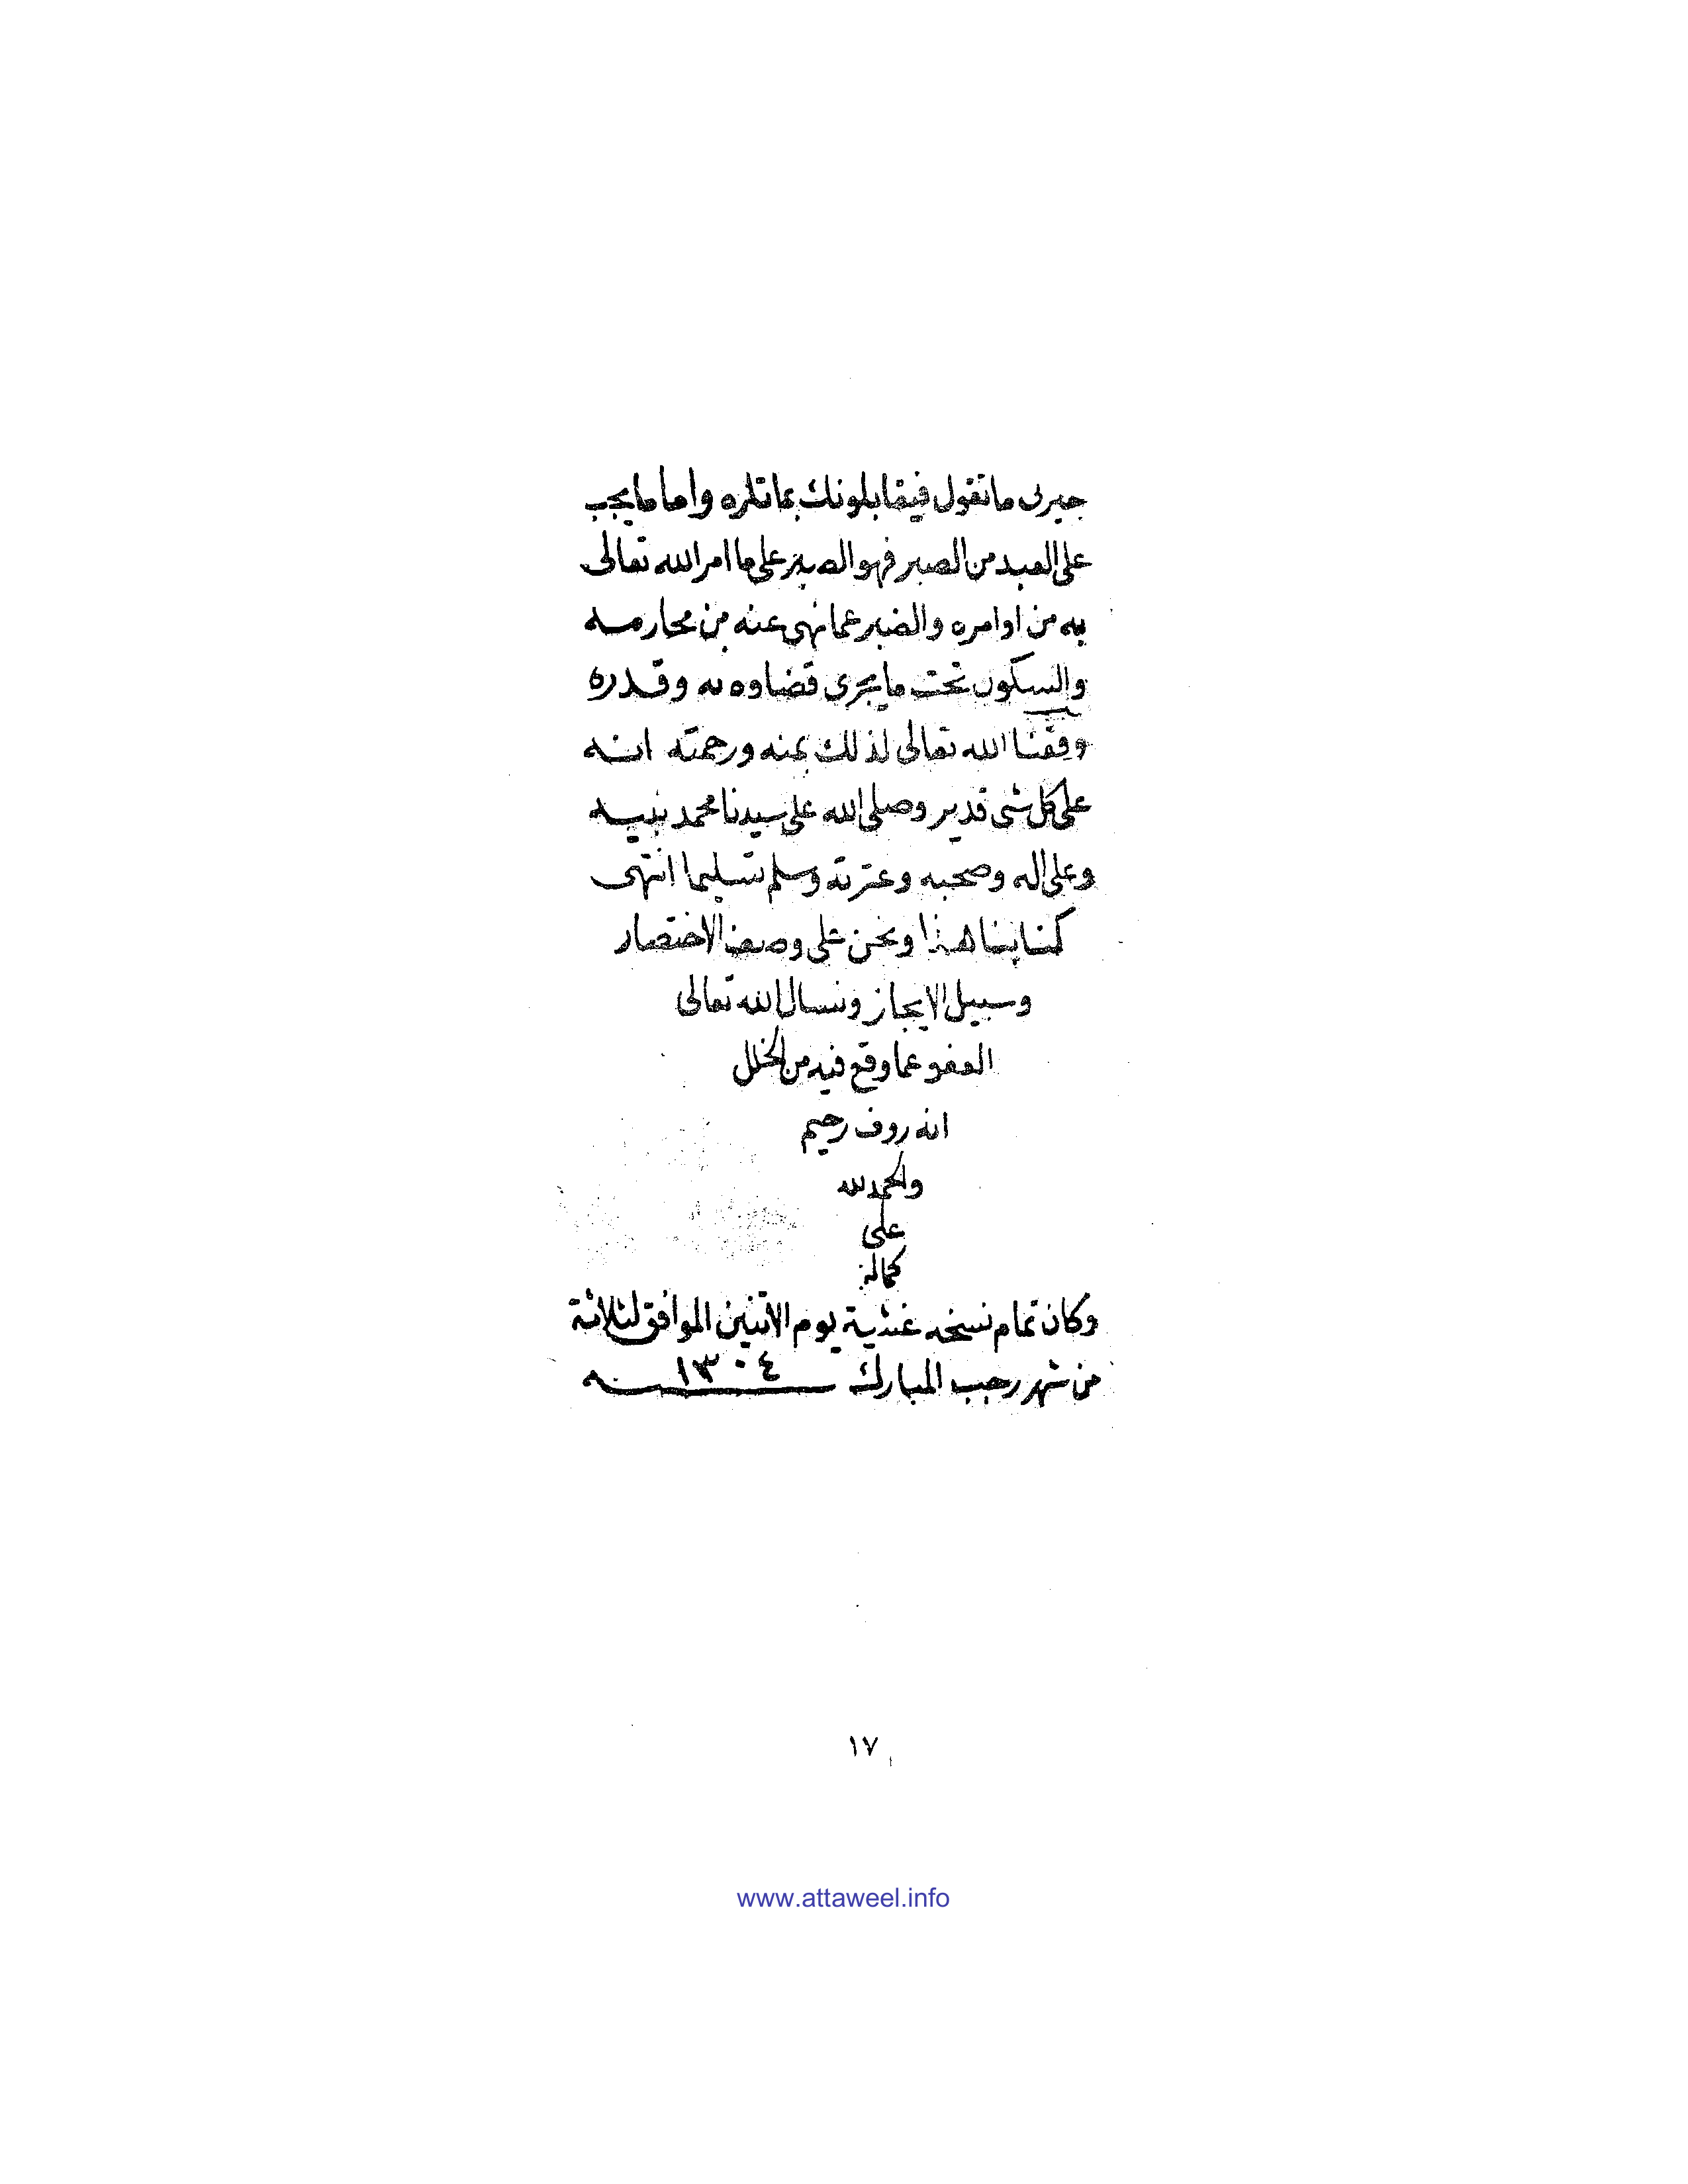 ما تقول فيقابلونك بما تكره واما ما يجب
على العبد من الصبر فهو الصبر على ما امر الله تعالى
به من اوامره والصبر عما نهى عنه من محارمه
والسكون تحت ما يجرى قضاوه به وقدره
وفقنا الله تعالى لذلك بمنه ورحمته انه
على كل شى قدير وصلى الله على سيدنا محمد نبيه
وعلى اله وصحبه وعترته وسلم تسليما انتهى
كتابنا هذا ونحن على وصف الاختصار
وسبيل الايجاز ونسال الله تعالى
العفو عما وقع فيه من الخلل
انه روف رحيم
والحمد لله
على
كماله
وكان تمام نسخه عشية يوم الاثنين الموافق لثلاثة
من شهر رجب المبارك سنه ١٣٠٤
١٧
www.attaweel.info